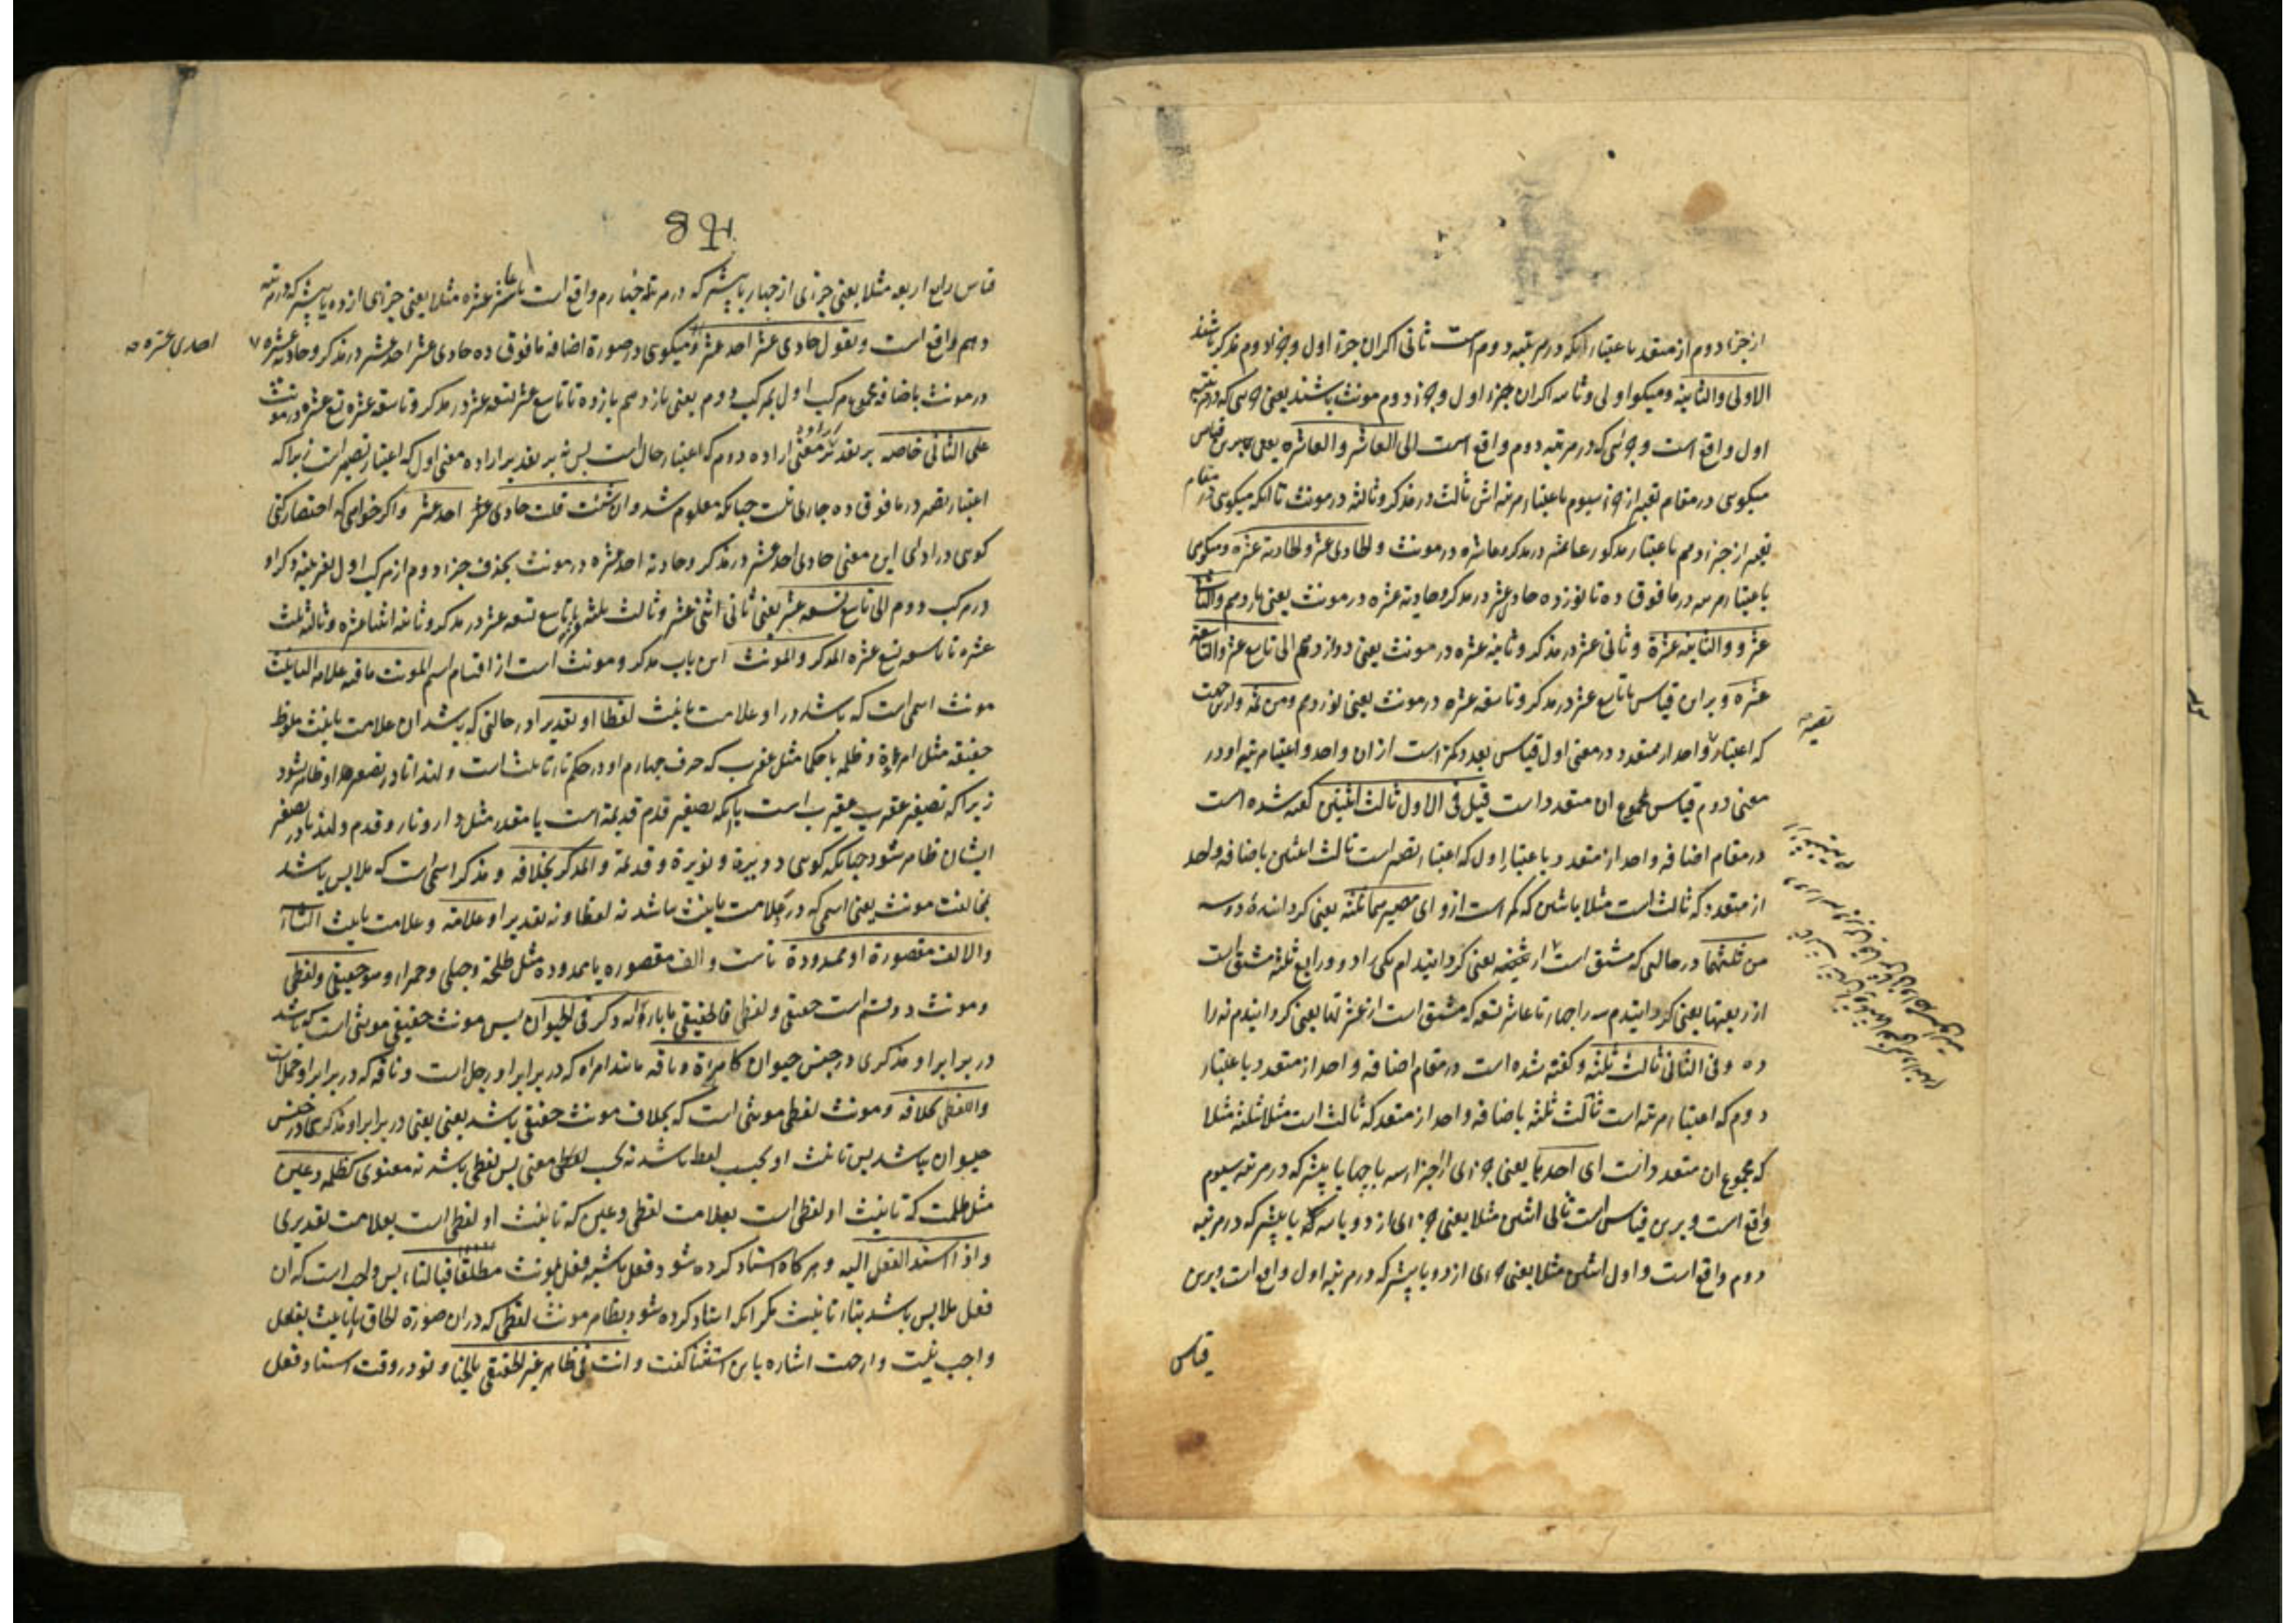 از جزء دوم از متعدد باعتبار آنکه در مرتبه دوم است ثانی اگر ان جزء اول و جزء دوم مذکر باشند
الاولی والثانیة ومیکو اولی وثانیه اکر ان جزء اول و جزء دوم مونث باشند یعنی جزئی که در مرتبه
اول واقع است و جزئی که در مرتبه دوم واقع است الی العاشر والعاشرة یعنی برین قیاس
میکوئی در مقام تعبیر از جزء سیوم باعتبار مرتبه اش ثالث در مذکر وثالثه در مونث تا آنکه میکوئی در مقام
تعبیر از جزء دهم باعتبار مذکور عاشر در مذکر وعاشره در مونث والحادی عشر والحادیة عشرة ومیکوئی
باعتبار مرتبه در ما فوق ده تا نوزده حادی عشر در مذکر وحادیة عشره در مونث یعنی یازدهم والثانی
عشر والثانیة عشرة وثانی عشر در مذکر وثانیة عشره در مونث یعنی دوازدهم الی تاسع عشر والتاسعة
عشرة وبراین قیاس تا تاسع عشر در مذکر وتاسعة عشره در مونث یعنی نوزدهم ومن ثمه وازین جهت
که اعتبار واحد از متعدد در معنی اول قیاس بعدد کمتر است ازان واحد واعتبار مرتبه او در
معنی دوم قیاس مجموع ان متعدد است قیل فی الاول ثالث اثنین گفته شده است
در مقام اضافه واحد از متعدد باعتبار اول که اعتبار تصییر است ثالث اثنین باضافه واحد
از متعدد که ثالث است مثلا باثنین که کم است ازو ای مصیرهما ثلثة یعنی کردانندهٔ دو سه
من ثلثتهما در حالتی که مشتق است از ثلثتهما یعنی کردانیدم یکی را دو ورابع ثلثة مشتق است
از ربعتها یعنی کردانیدم سه را چهار تا عاشر تسعه که مشتق است از عشرتها یعنی کردانیدم نه را
ده وفی الثانی ثالث ثلثة وگفته شده است در مقام اضافه واحد از متعدد باعتبار
دوم که اعتبار مرتبه است ثالث ثلثه باضافه واحد از متعدد که ثالث است مثلا ثلثه مثلا
که مجموع ان متعدد است ای احدها یعنی جزءی از اجزاء سه یا چهار یا بیشتر که در مرتبه سیوم
واقع است وبرین قیاس است ثانی اثنین مثلا یعنی جزءی از دو یا سه یا بیشتر که در مرتبه
دوم واقع است واول اثنین مثلا یعنی جزءی از دو یا بیشتر که در مرتبه اول واقع است وبرین
قیاس
قیاس رابع اربعه مثلا یعنی جزءی از چهار یا بیشتر که در مرتبه چهارم واقع است تا عاشر عشره مثلا یعنی جزءی از ده یا بیشتر که در مرتبه
دهم واقع است وتقول حادی عشر احد عشر ومیکوئی در صورة اضافه ما فوق ده حادی عشر احد عشر در مذکر وحادیة عشرة
احدی عشرة صح
در مونث باضافه مجموع مرکب اول بمرکب دوم یعنی یازدهم یازده تا تاسع عشر تسعة عشر در مذکر وتاسعة عشره تسع عشره در مونث
علی الثانی خاصه بر تقدیر معنی اراده دوم که اعتبار حال است بس نه بر تقدیر اراده معنی اول که اعتبار تصییر است زیرا که
اعتبار تصییر در ما فوق ده جاری نیست چنانکه معلوم شد وان شئت قلت حادی عشر احد عشر واکر خواهی که اختصار کنی
کوئی در ادای این معنی حادی احد عشر در مذکر وحادیة احد عشره در مونث بحذف جزء دوم از مرکب اول بقرینه ذکر او
در مرکب دوم الی تاسع تسعة عشر یعنی ثانی اثنی عشر وثالث ثلثة عشر تا تاسع تسعة عشر در مذکر وثانیة اثنتا عشره وثالثه ثلث
عشره تا تاسعه تسع عشره المذکر والمونث این باب مذکر ومونث است از اقسام اسم المونث ما فیه علامة التانیث
مونث اسمی است که باشد در او علامت تانیث لفظا او تقدیرا در حالتی که باشد ان علامت تانیث ملفوظ
حقیقة مثل امرءة وظلمه یا حکما مثل عقرب که حرف چهارم او در حکم تاء تانیث است ولهذا تا در تصغیر او ظاهر نشود
زیرا که تصغیر عقرب عقیرب است یا آنکه تصغیر قدم قدیمة است یا مقدر مثل دار ونار وقدم ولهذا تا در تصغیر
ایشان ظاهر شود چنانکه کوئی دویرة ونویرة وقدیمة والمذکر بخلافه ومذکر اسمی است که ملابس باشد
بمخالفت مونث یعنی اسمی که در علامت تانیث نباشد نه لفظا ونه تقدیرا وعلامته وعلامت تانیث التاء
والالف مقصورة او ممدودة تاست والف مقصوره یا ممدوده مثل طلحة وحبلی وحمراء وهو حقیقی ولفظی
ومونث دو قسم است حقیقی ولفظی فالحقیقی ما بازائه ذکر فی الحیوان بس مونث حقیقی مونثی است که باشد
در برابر او مذکری در جنس حیوان کامرأة وناقه مانند امراه که در برابر او رجل است وناقه که در برابر او جمل است
واللفظی بخلافه ومونث لفظی مونثی است که بخلاف مونث حقیقی باشد یعنی در برابر او مذکری در جنس
حیوان نباشد بس تانیث او بحسب لفظ باشد نه بحسب معنی بس لفظی باشد نه معنوی کظلمة وعین
مثل ظلمت که تانیث او لفظی است بعلامت لفظی وعین که تانیث او لفظی است بعلامت تقدیری
واذا اسند الفعل الیه وهر کاه اسناد کرده شود فعل یا شبه فعل بمونث مطلقا فبالتاء بس واجب است که ان
فعل ملابس باشد بتاء تانیث مکر آنکه اسناد کرده شود بظاهر مونث لفظی که دران صورة الحاق تاء تانیث بفعل
واجب نیست وازجهت اشاره باین استثنا کفت وانت فی ظاهر غیر الحقیقی بالخیار وتو در وقت اسناد فعل